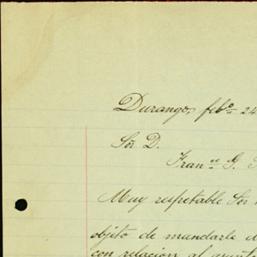 Durango, feb.o 24
Sor. D.
Fran.co G.
Muy respetable Sor
objeto de mandarle
con relacion al